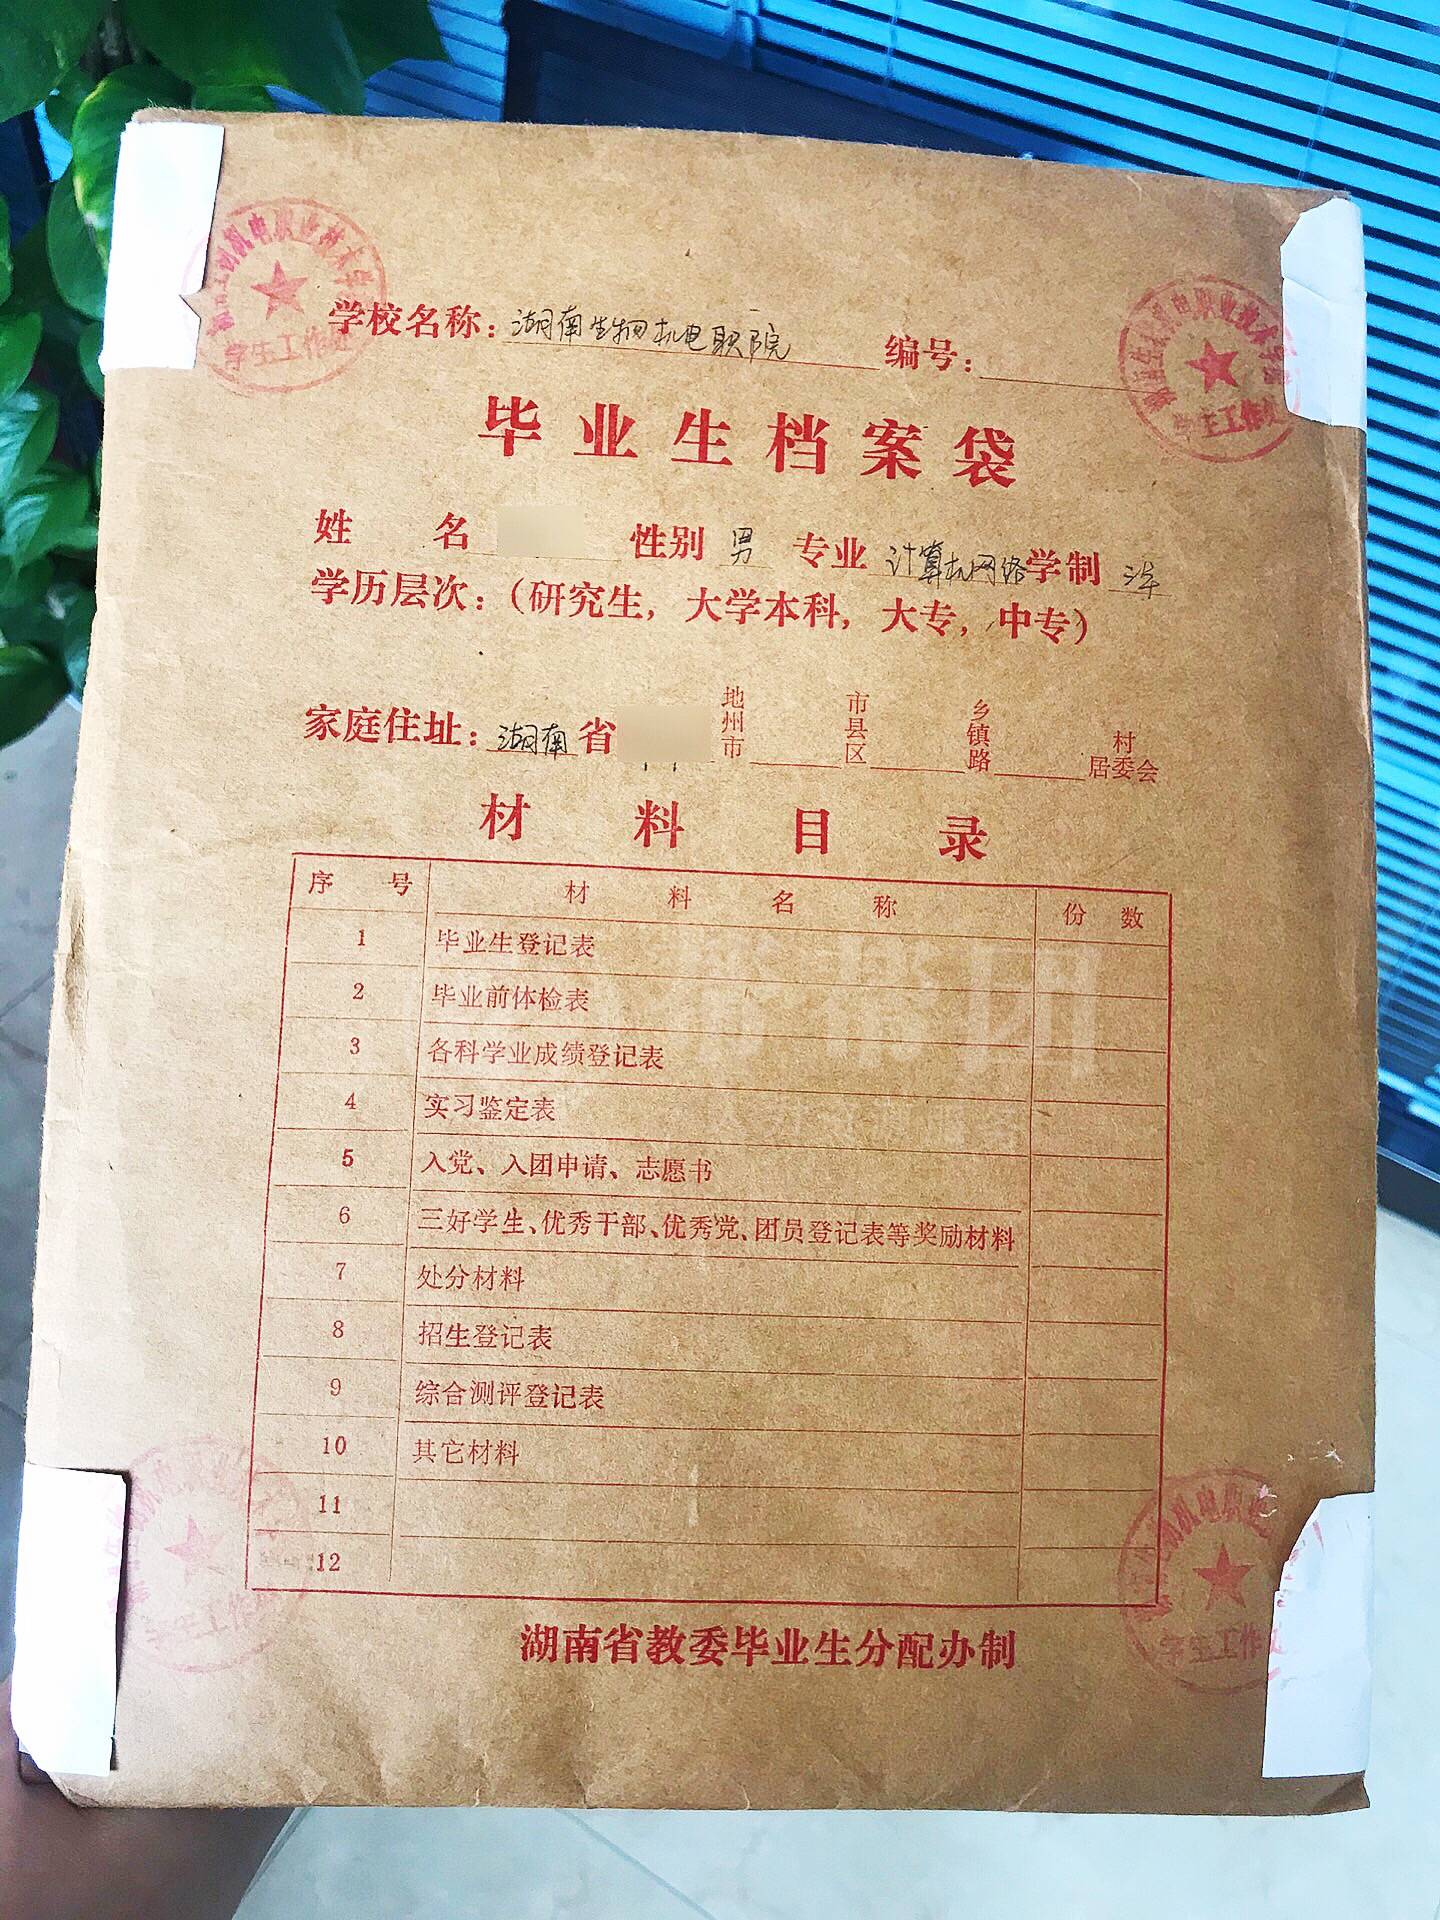 学校名称：湖南生物机电职院 编号：
毕业生档案袋
姓名 性别 男 专业 计算机网络 学制
学历层次：（研究生，大学本科，大专，中专）
家庭住址：湖南省 地州市 市县区 乡镇路 村居委会
材料目录
序号 材料名称 份数
1 毕业生登记表
2 毕业前体检表
3 各科学业成绩登记表
4 实习鉴定表
5 入党、入团申请、志愿书
6 三好学生、优秀干部、优秀党、团员登记表等奖励材料
7 处分材料
8 招生登记表
9 综合测评登记表
10 其它材料
11
12
湖南省教委毕业生分配办制
机电职业技术学
学生工作处
机电职业技术学院
学生工作处
机电职业
学生工作
机电职业
学生工作